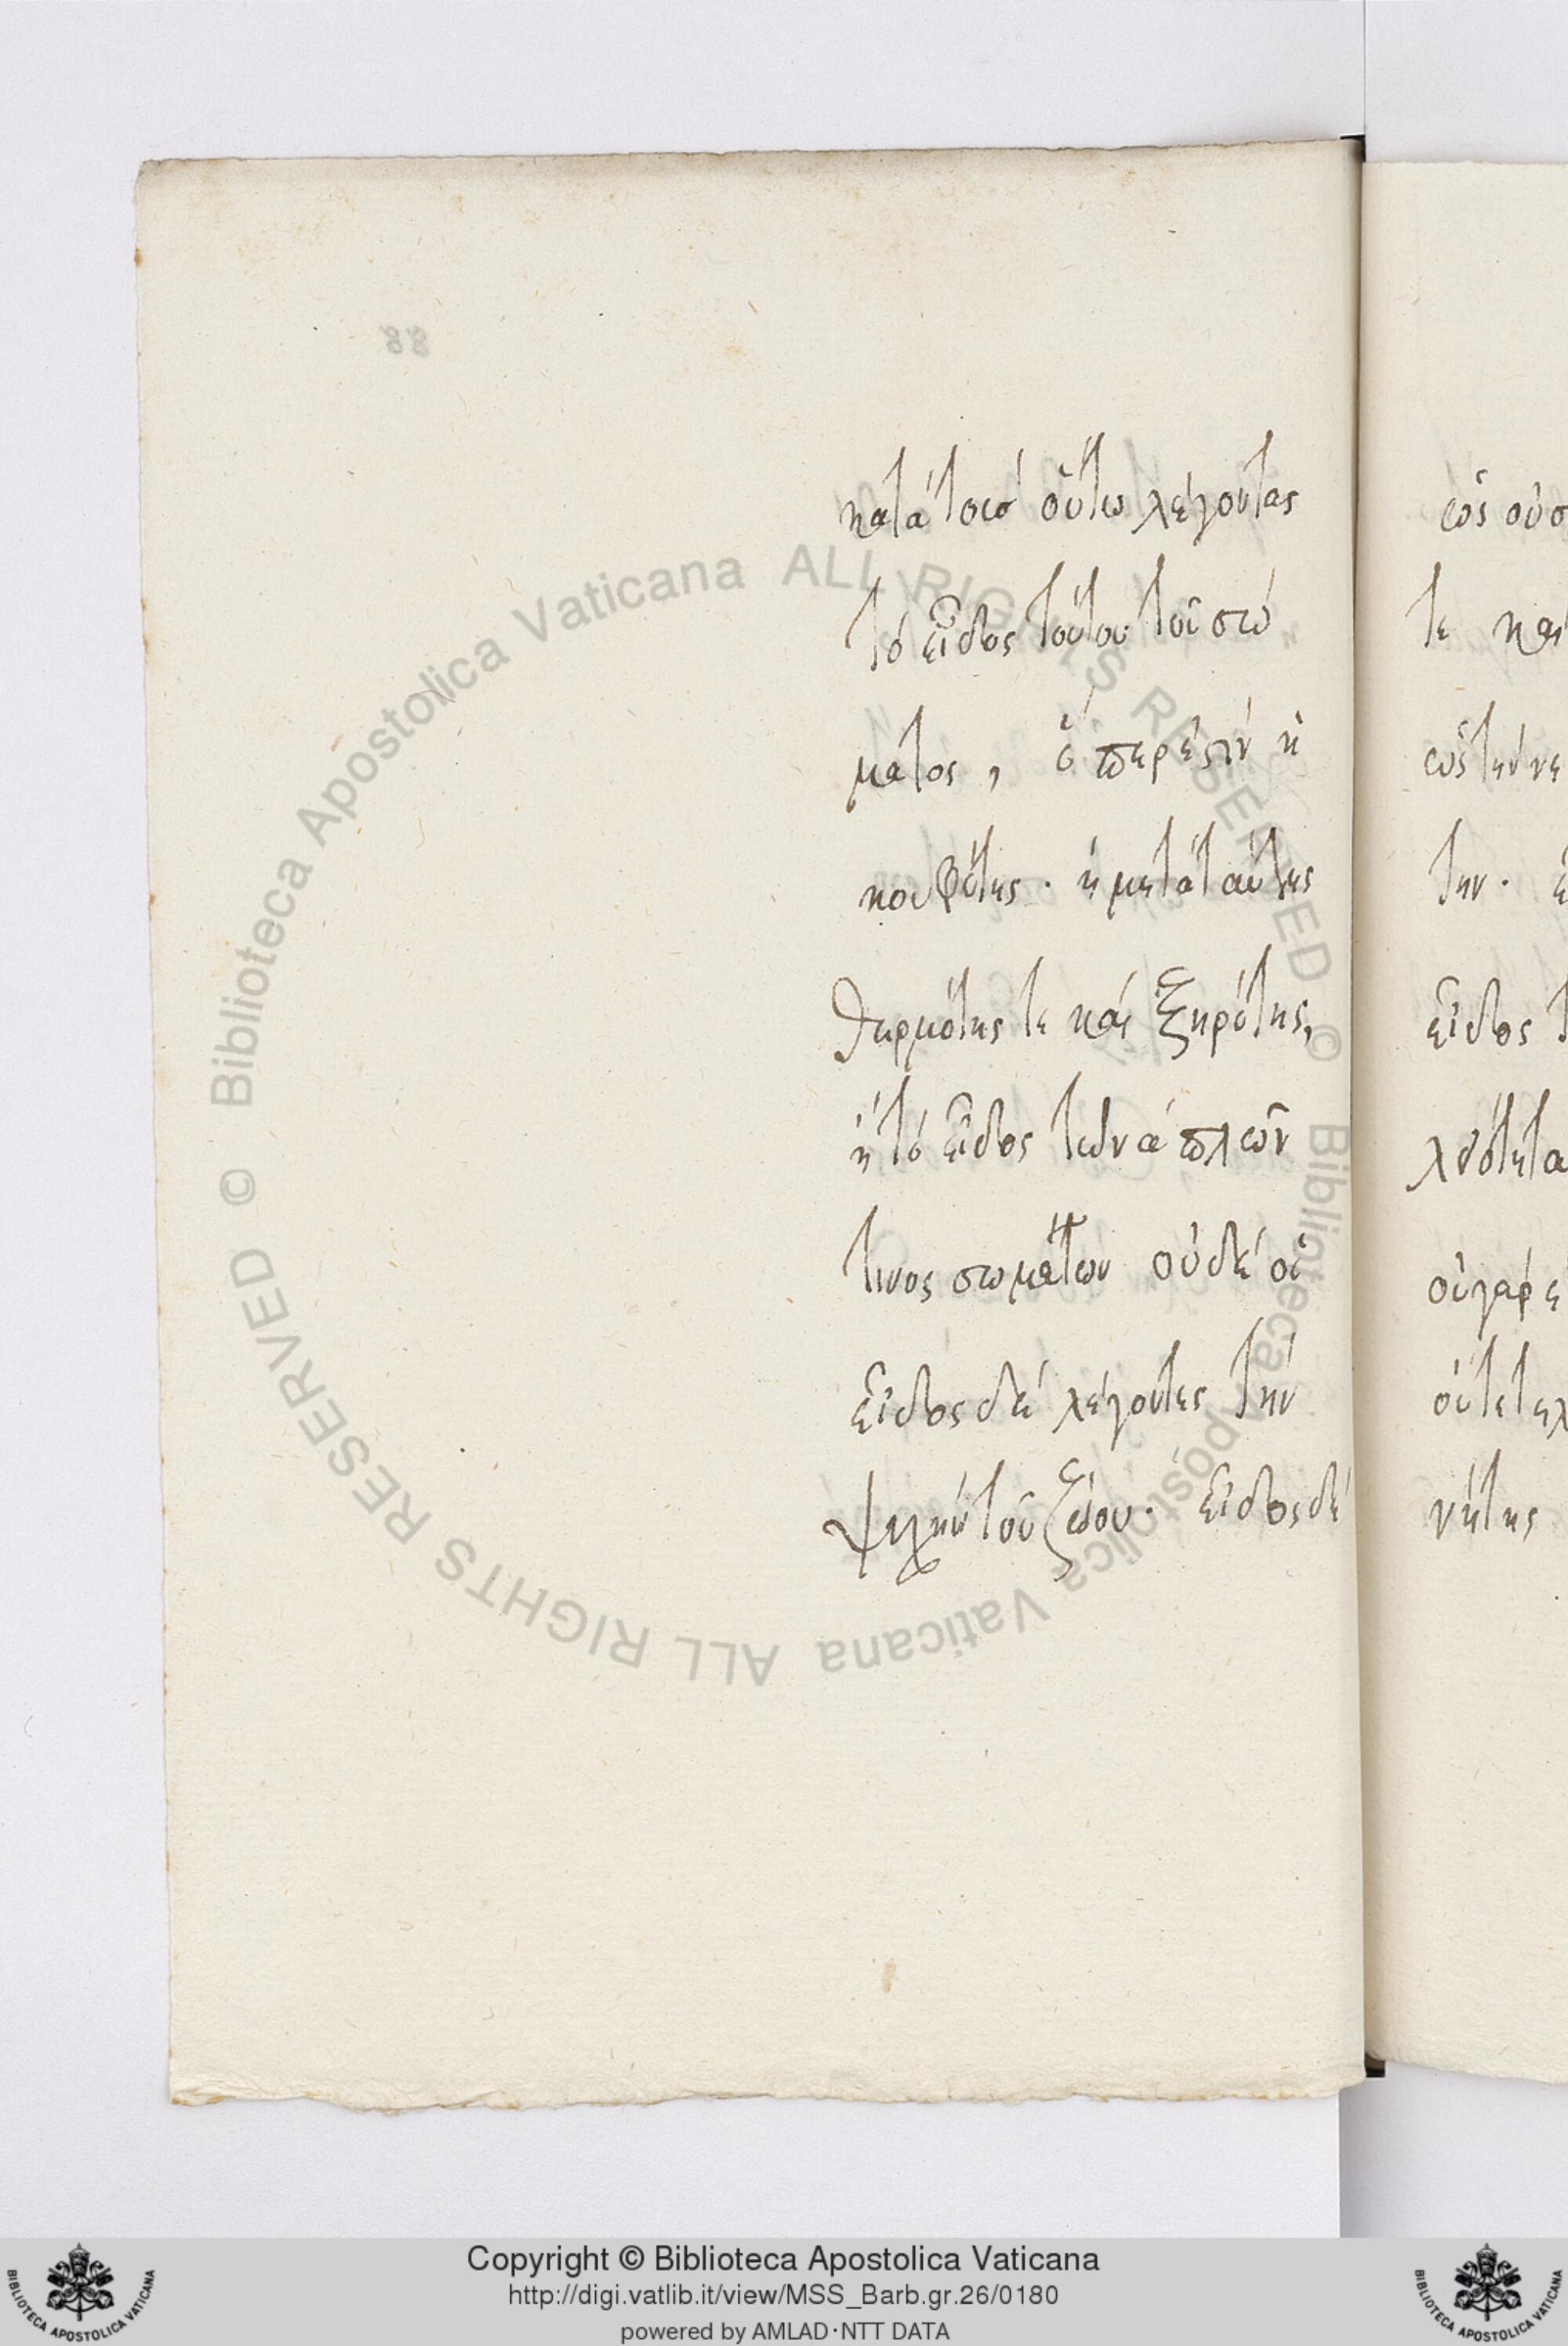 κατὰ τοὺσ οὕτω λέγοντας
τὸ εἶδος τούτου τοῦ σώ
ματος, ὅπερ ἐστὶν ἡ
κουφότης· ἡ μετὰ ταύτης
θερμότης τε καὶ ξηρότης,
ἢ τὸ εἶδος τῶν ἁπλῶν
τινος σωμάτων οὐδὲ οἱ
εἶδος δὲ λέγοντες τὴν
ψυχὴν τοῦ ζώου· εἶδος δὲ
ὡς οὐσ
τε και
ὡς την
την·
εἶδος
οὐ γὰρ
νήτης
88
© Biblioteca Apostolica Vaticana ALL RIGHTS RESERVED © Biblioteca Apostolica Vaticana ALL RIGHTS RESERVED
Copyright © Biblioteca Apostolica Vaticana
http://digi.vatlib.it/view/MSS_Barb.gr.26/0180
powered by AMLAD·NTT DATA
BIBLIOTECA APOSTOLICA VATICANA
BIBLIOTECA APOSTOLICA VATICANA